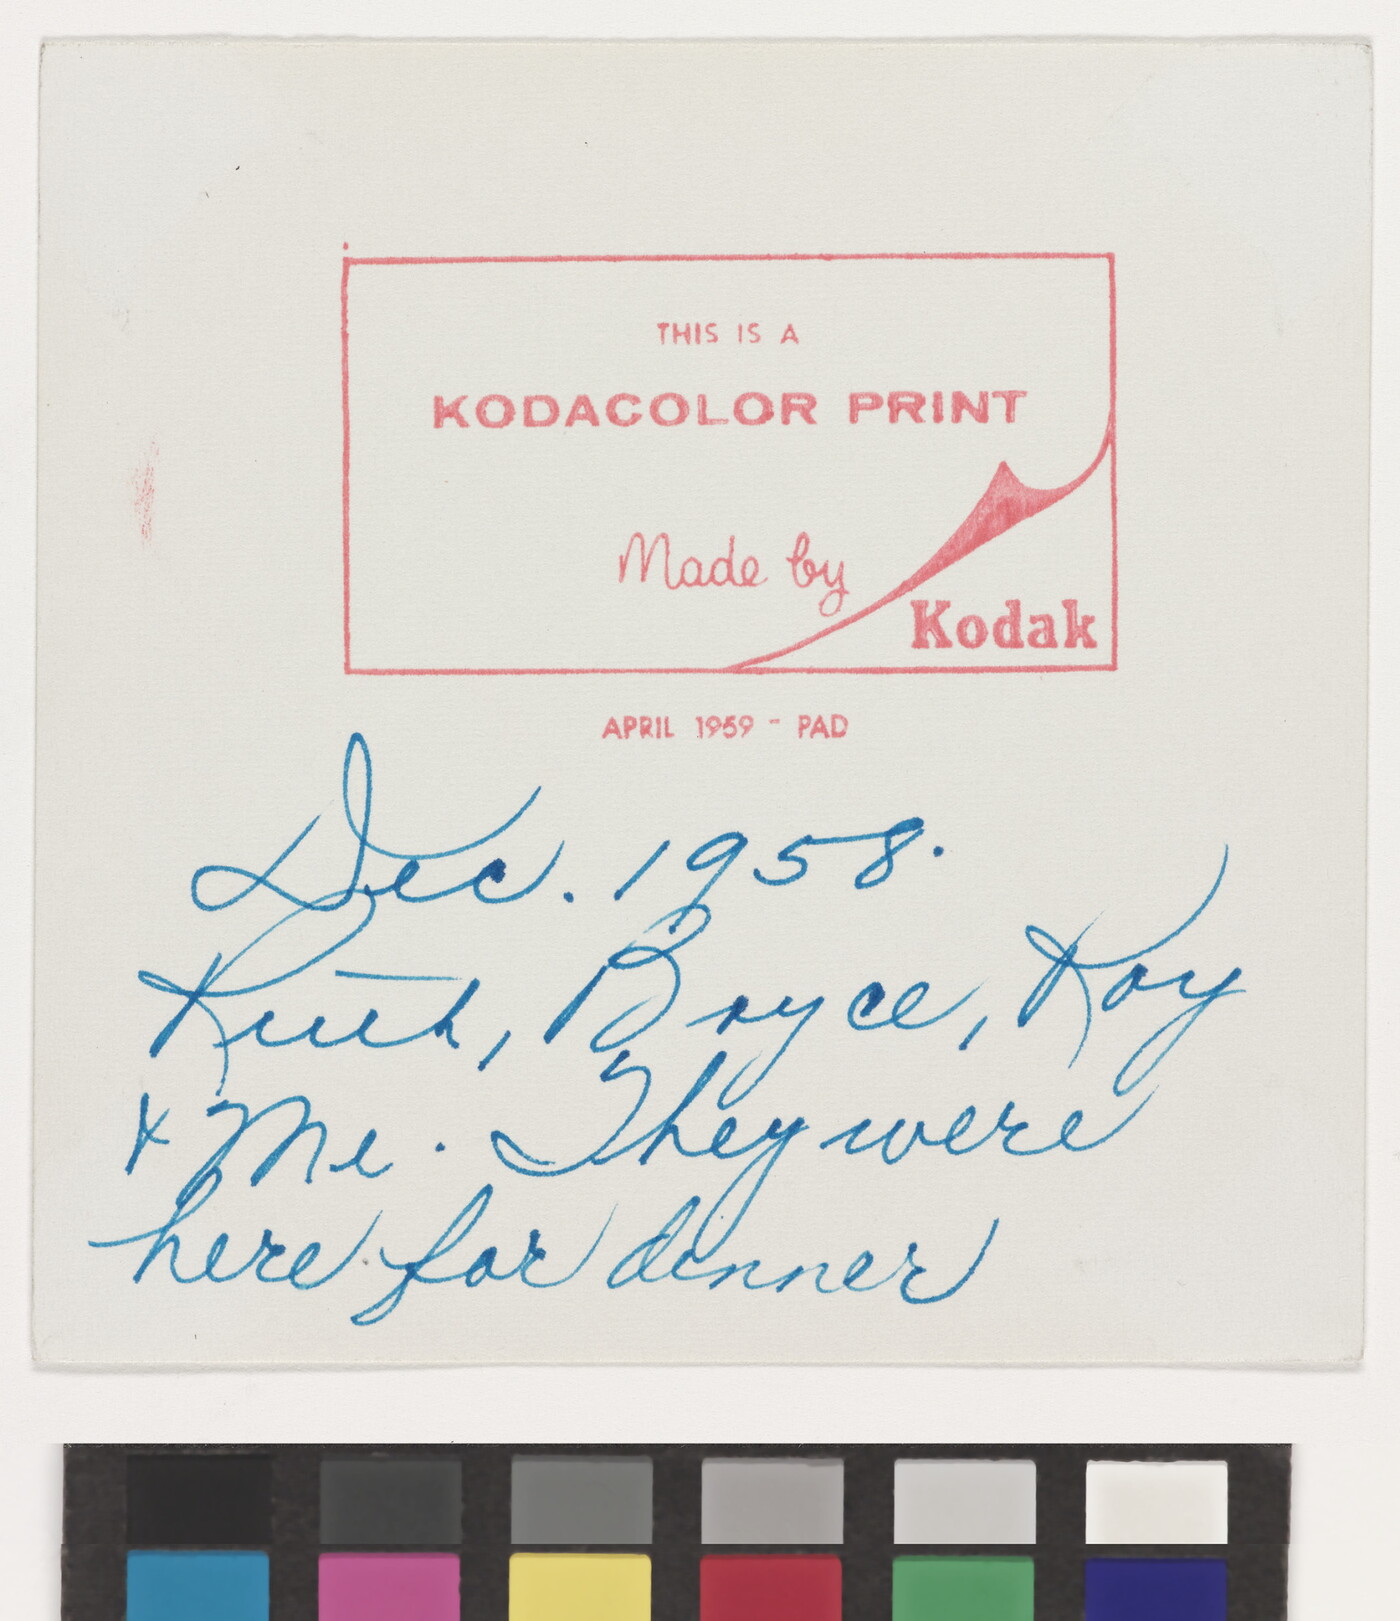 THIS IS A
KODACOLOR PRINT
Made by
Kodak
APRIL 1959 - PAD
Dec. 1958.
Ruth, Boyce, Roy
& Me. They were
here for dinner